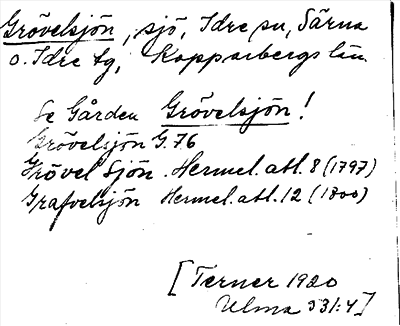 Grövelsjön, sjö, Idre sn, Särna
o. Idre tg, Kopparbergs län.
Se Gården Grövelsjön!
Grövelsjön G. 76
Grövel Sjön. Hermel. atl. 8 (1797)
Grafvelsjön Hermel. atl. 12 (1800)
[Terner 1920
Ulma 331:4]